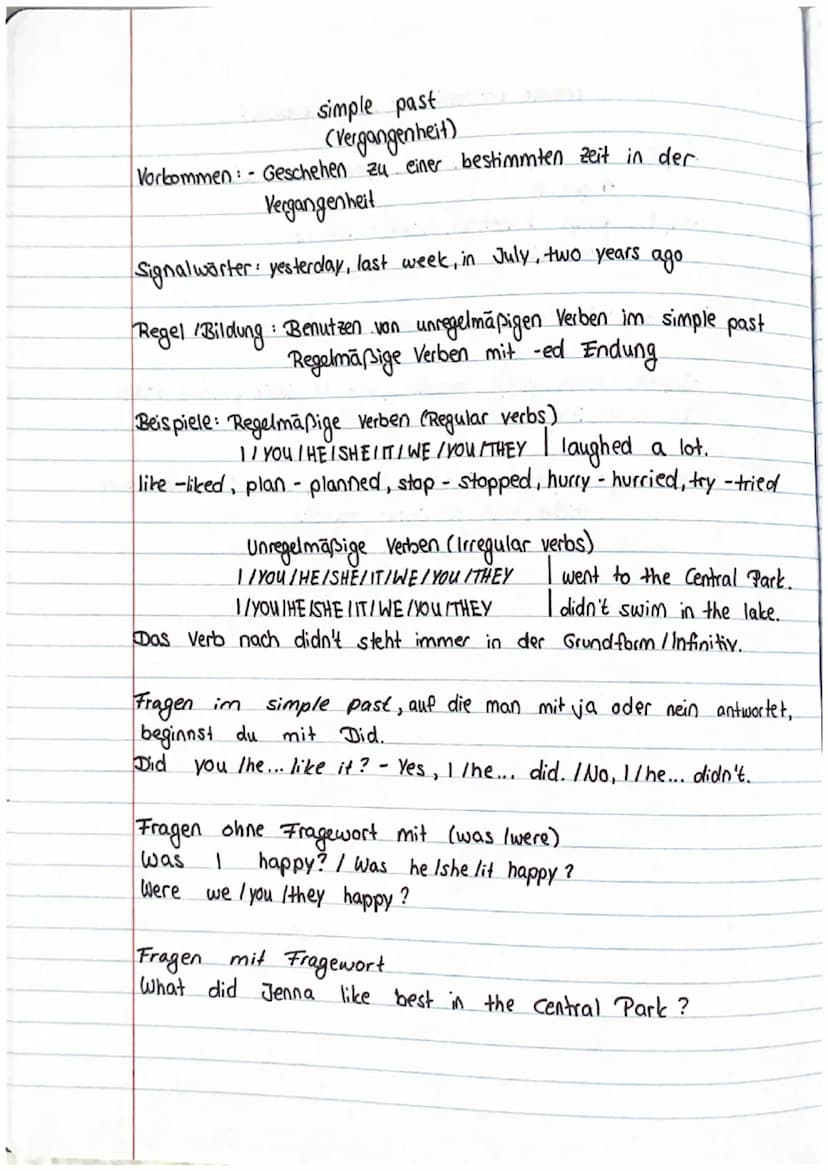 simple past
(Vergangenheit)
Vorkommen: - Geschehen zu einer bestimmten Zeit in der
Vergangenheit
Signalwörter: yesterday, last week, in July, two years ago
Regel / Bildung: Benutzen von unregelmäßigen Verben im simple past
Regelmäßige Verben mit -ed Endung
Beispiele: Regelmäßige Verben (Regular verbs)
I / YOU / HE / SHE / IT / WE / YOU / THEY | laughed a lot.
like - liked, plan - planned, stop - stopped, hurry - hurried, try - tried
Unregelmäßige Verben (Irregular verbs)
I / YOU / HE / SHE / IT / WE / YOU / THEY | went to the Central Park.
I / YOU / HE / SHE / IT / WE / YOU / THEY | didn't swim in the lake.
Das Verb nach didn't steht immer in der Grundform / Infinitiv.
Fragen im simple past, auf die man mit ja oder nein antwortet,
beginnst du mit Did.
Did you / he ... like it? - Yes, I / he... did. / No, I / he... didn't.
Fragen ohne Fragewort mit (was / were)
Was I happy? / Was he / she / it happy?
Were we / you / they happy?
Fragen mit Fragewort
What did Jenna like best in the Central Park?